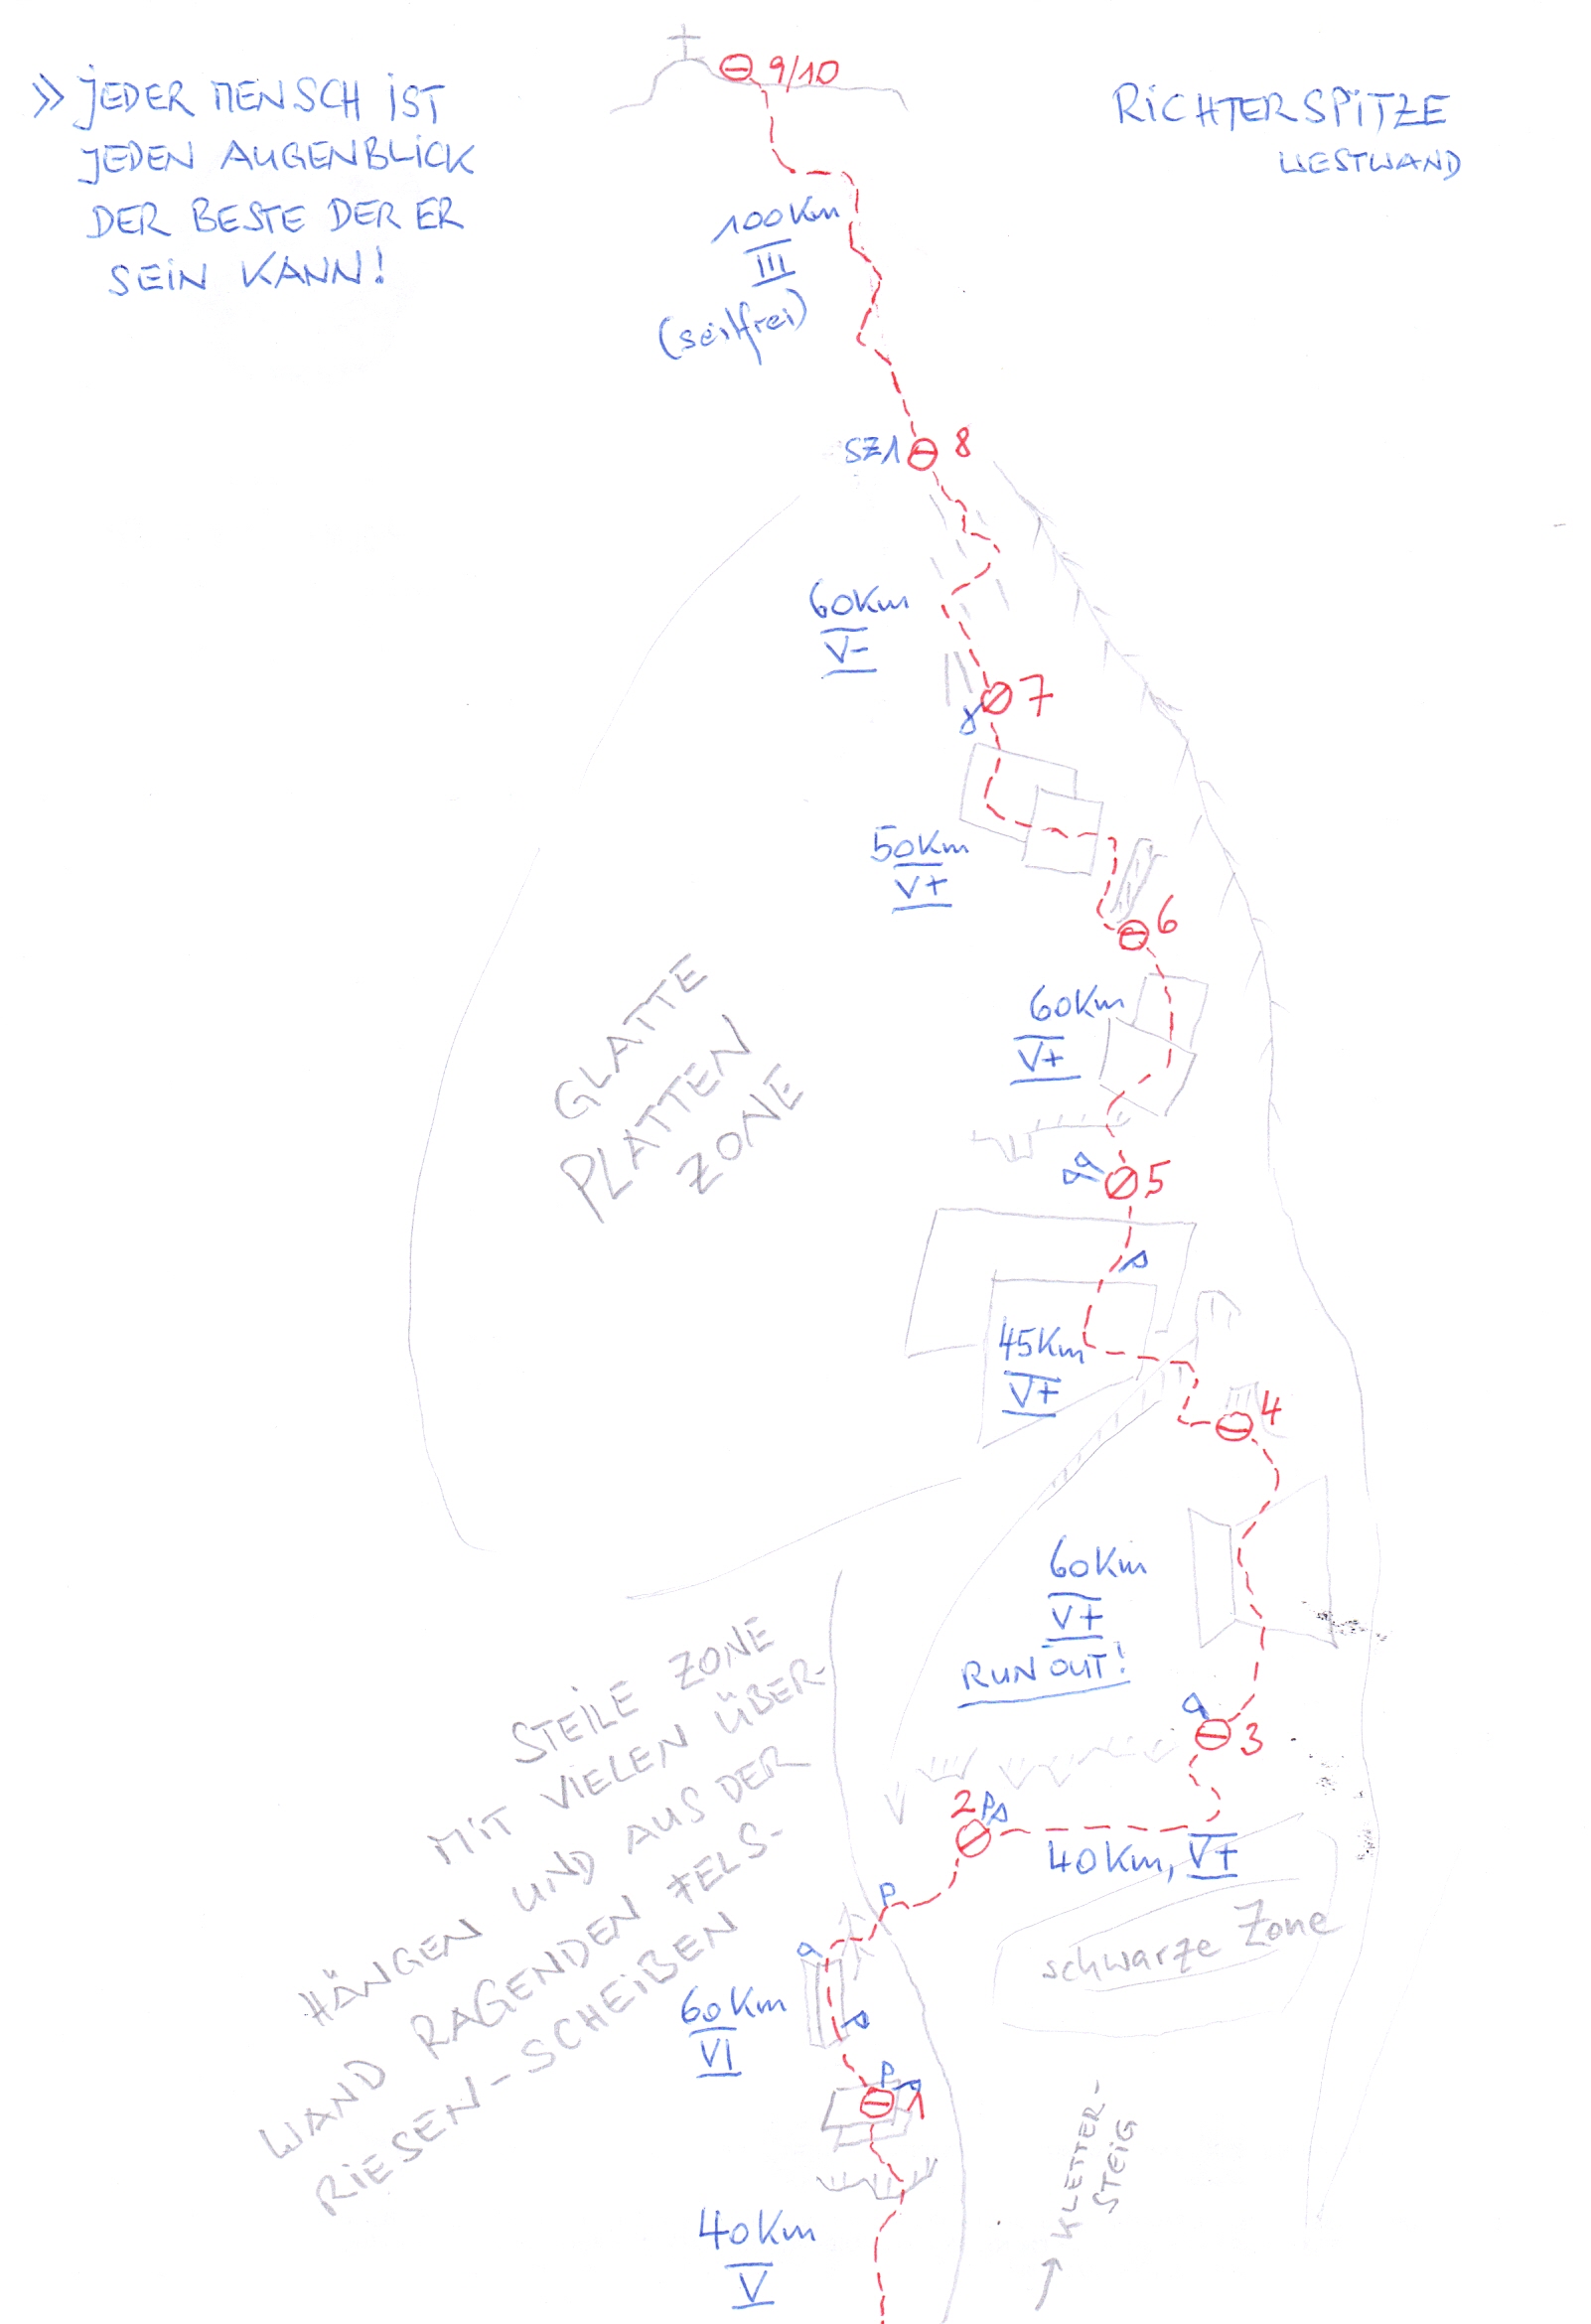 » JEDER MENSCH IST
JEDEN AUGENBLICK
DER BESTE DER ER
SEIN KANN!
RICHTERSPITZE
WESTWAND
9/10
100Km
III
(seilfrei)
SZ1 8
60Km
V-
7
50Km
V+
6
60Km
V+
5
GLATTE
PLATTEN
ZONE
45Km
V+
4
60Km
V+
RUN OUT!
3
2
40Km, V+
schwarze Zone
STEILE ZONE
MIT VIELEN ÜBER-
HÄNGEN UND AUS DER
WAND RAGENDEN FELS-
RIESEN-SCHEIBEN
P
60Km
VI
P
1
40Km
V
KLETTER-
STEIG